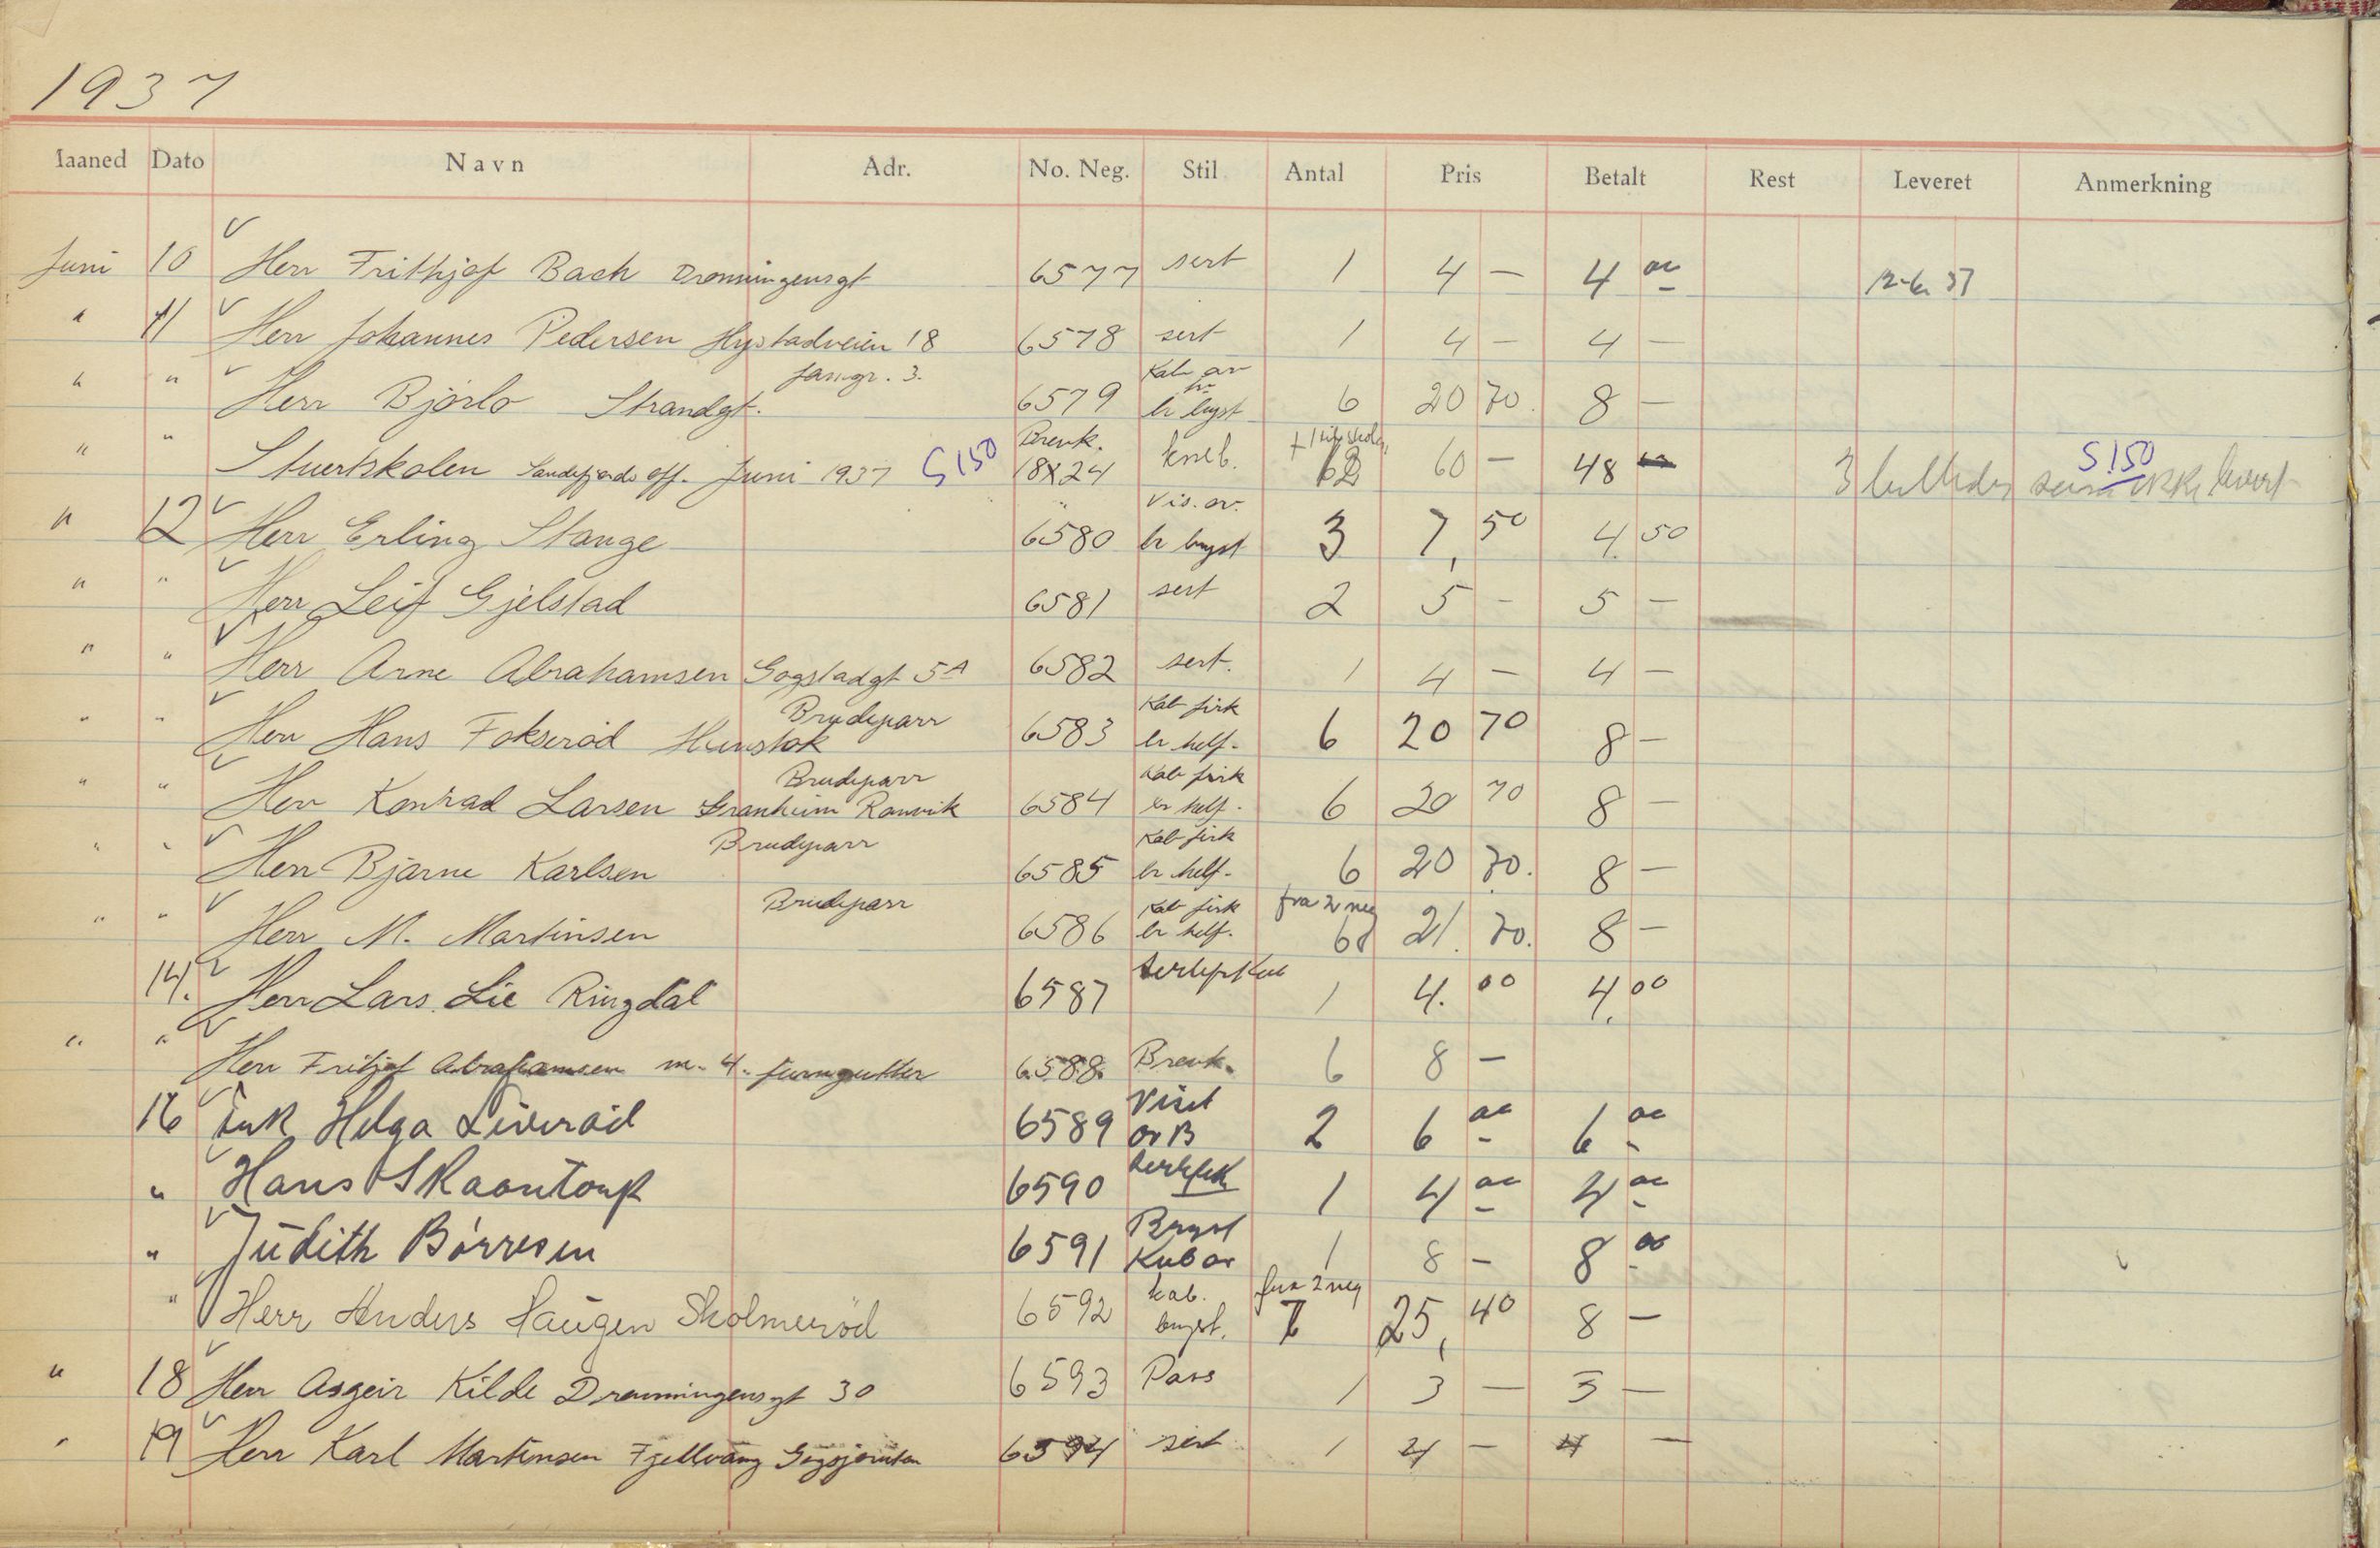 1937
Maaned Dato Navn Adr. No. Neg. Stil Antal Pris Betalt Rest Leveret Anmerkning
Juni 10 Herr Frithjof Bach Dronningensgt 6577 sert 1 4 — 4 00 12-6 37
" 11 Herr Johannes Pedersen Hystadveien 18 6578 sert 1 4 — 4 —
" " Herr Bjørlo Strandgt. 6579 Kab av br byst 6 20 70. 8 —
" " Stuertskolen Sandefjords off. Juni 1937 S150 Brevk. 18X24 kneb. 60 — 48 3 billeder S.150 levert
" 12 Herr Erling Stange 6580 Vis. ov. br byst 3 7, 50 4. 50
" " Herr Leif Gjelstad 6581 sert 2 5 - 5 —
" " Herr Arne Abrahamsen Gogstadgt 5A 6582 sert. 1 4 — 4 —
" " Herr Hans Fokserød Hunstok Brudeparr 6583 Kab firk br helf. 6 20 70 8 —
" " Herr Konrad Larsen Granheim Ranvik Brudeparr 6584 Kab firk br helf. 6 20 70 8 —
" " Herr Bjarne Karlsen Brudeparr 6585 Kab firk br helf. 6 20 70. 8 —
" " Herr M. Martinsen Brudeparr 6586 Kab firk br helf. fra 2 neg 6 21. 70. 8 —
14. Herr Lars Lie Ringdal 6587 1 4. 00 4. 00
" " Herr Fritjof Abrahamsen m. 4. turngutter 6588. Brevk. 6 8 —
16 Frk Helga Liverød 6589 Visit ov B 2 6 00 6 00
" Hans 6590 1 4 00 4 00
" Judith Børresen 6591 Bryst Kab ov 1 8 - 8 00
" Herr Anders Haugen Skolmerød 6592 kab. bryst. fra 2 neg 7 25, 40 8 —
" 18 Herr Asgeir Kilde Dronningensgt 30 6593 Pass 1 3 — 3 —
" 19 Herr Karl Martinsen Fjellvang 6594 sert 1 4 — 4 —